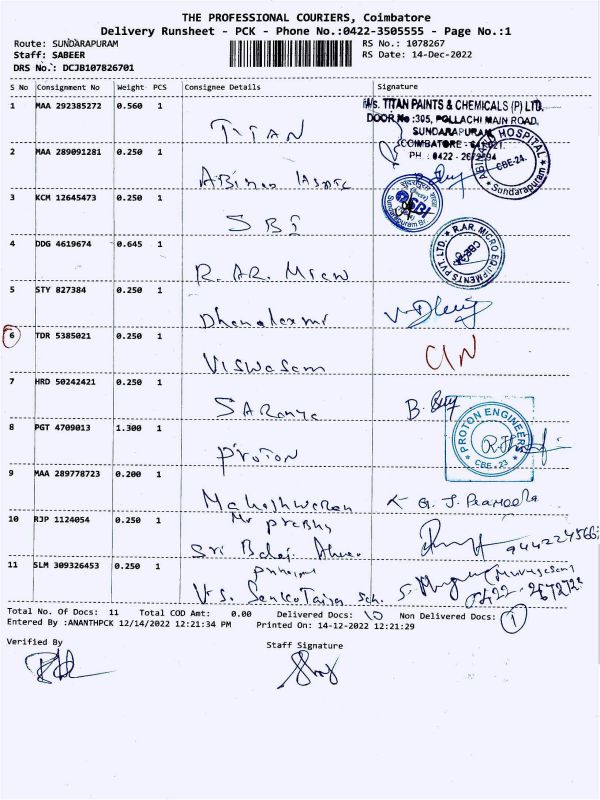 THE PROFESSIONAL COURIERS, Coimbatore
Delivery Runsheet - PCK - Phone No.:0422-3505555 - Page No.:1
Route: SUNDARAPURAM
RS No.: 1078267
Staff: SABEER
RS Date: 14-Dec-2022
DRS No.: DCJB107826701
S No Consignment No Weight PCS Consignee Details Signature
1 MAA 292385272 0.560 1 TITAN
M/s. TITAN PAINTS & CHEMICALS (P) LTD.
DOOR No :305, POLLACHI MAIN ROAD,
SUNDARAPURAM
COIMBATORE - 641021.
PH : 0422 -
2 MAA 289091281 0.250 1
ABINAND HOSPITAL
CBE-24.
Sundarapuram
3 KCM 12645473 0.250 1 SBI
SBI
Sundarapuram Br.
4 DDG 4619674 0.645 1 R.AR. Micro
R.AR. MICRO EQUIPMENTS PVT. LTD.
5 STY 827384 0.250 1 Dhanalaxmi
6 TDR 5385021 0.250 1 Viswasam
C/N
7 HRD 50242421 0.250 1 SARanya
B.
8 PGT 4709013 1.300 1 Proton
PROTON ENGINEERS
CBE - 23
9 MAA 289778723 0.200 1 Maheshwaran
G. J. Prameela
10 RJP 1124054 0.250 1 Mr Prabhu
Sri Balaji
11 SLM 309326453 0.250 1
V.S. Sch.
Total No. Of Docs: 11 Total COD Amt: 0.00 Delivered Docs: 10 Non Delivered Docs: 1
Entered By :ANANTHPCK 12/14/2022 12:21:34 PM Printed On: 14-12-2022 12:21:29
Verified By
Staff Signature